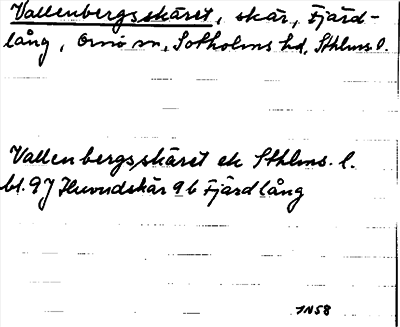 Vallenbergsskäret, skär, Fjärd-
lång, Ornö sn, Sotholms hd, Sthlms l.
Vallenbergsskäret ek Sthlms. l.
bl. 97 Huvudskär 9 b Fjärdlång
JN58